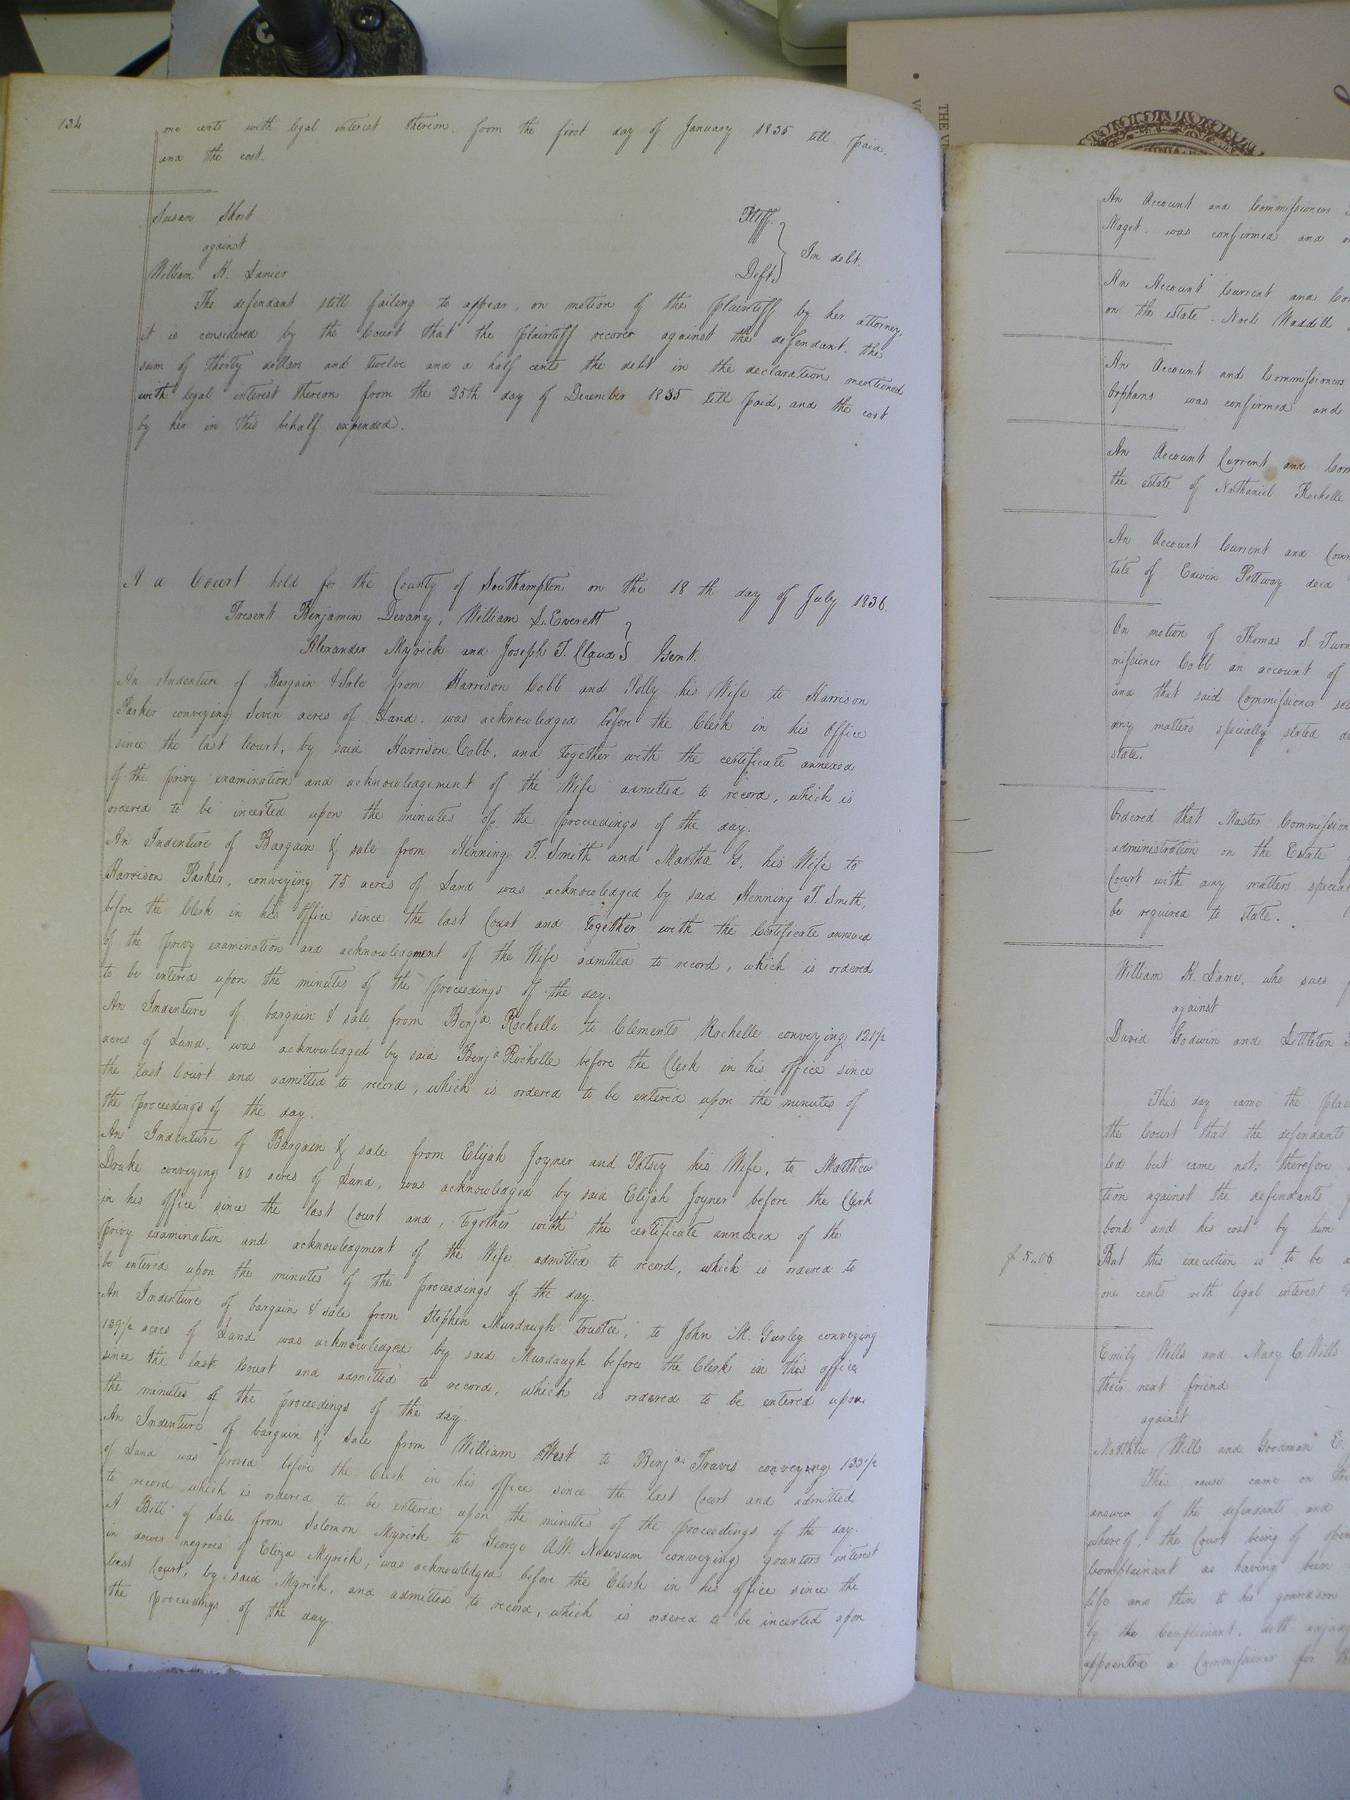 134
one cents with legal interest thereon, from the first day of January 1835 till paid.
and the cost.
Susan Short Pltff.
against In debt.
William H. Lanier Deft.
The defendant still failing to appear, on motion of the plaintiff by her attorney,
it is considered by the Court that the plaintiff recover against the defendant, the
sum of thirty dollars and twelve and a half cents the debt in the declaration mentioned
with legal interest thereon from the 25th day of December 1835 till paid, and the cost
by her in this behalf expended.
At a Court held for the County of Southampton on the 18th day of July 1836.
Present Benjamin Devany, William L. Everett
Alexander Myrick and Joseph T. Claud Gent.
An Indenture of Bargain & Sale from Harrison Cobb and Polly his Wife to Harrison
Parker conveying Seven acres of Land, was acknowledged before the Clerk in his Office
since the last Court, by said Harrison Cobb, and together with the certificate annexed
of the privy examination and acknowledgement of the Wife admitted to record, which is
ordered to be incerted upon the minutes of the proceedings of the day.
An Indenture of Bargain & sale from Henning T. Smith and Martha G. his Wife to
Harrison Parker, conveying 75 acres of Land was acknowledged by said Henning T. Smith,
before the Clerk in his Office since the last Court and together with the Certificate annexed
of the privy examination and acknowledgment of the Wife admitted to record, which is ordered
to be entered upon the minutes of the proceedings of the day.
An Indenture of bargain & sale from Benja Rochelle to Clements Rochelle conveying 121½
acres of Land, was acknowledged by said Benja Rochelle before the Clerk in his office since
the last Court and admitted to record, which is ordered to be entered upon the minutes of
the proceedings of the day.
An Indenture of Bargain & sale from Elijah Joyner and Patsey his Wife, to Matthew
Drake conveying 80 acres of Land, was acknowledged by said Elijah Joyner before the Clerk
in his office since the last Court and, together with the certificate annexed of the
privy examination and acknowledgment of the Wife admitted to record, which is ordered to
be entered upon the minutes of the proceedings of the day.
An Indenture of bargain & sale from Stephen Murdaugh Trustee, to John M. Gurley conveying
139½ acres of Land was acknowledged by said Murdaugh before the Clerk in this office
since the last Court and admitted to record, which is ordered to be entered upon
the minutes of the proceedings of the day.
An Indenture of bargain & Sale from William West to Benja Travis conveying 133½
of Land was proved before the Clerk in his office since the last Court and admitted
to record which is ordered to be entered upon the minutes of the proceedings of the day.
A Bill of Sale from Solomon Myrick to George A.W. Newsum conveying grantors interest
in dower negroes of Eliza Myrick, was acknowledged before the Clerk in his office since the
last Court, by said Myrick, and admitted to record, which is ordered to be incerted upon
the proceedings of the day
An Account and Commissioners
Maget was confirmed and
An Account Current and
on the estate Noel Waddill
An Account and Commissioners
Orphans was confirmed and
An Account Current and
the estate of Nathaniel Rochelle
An Account Current and
tate of Edwin Pottway decd
On motion of Thomas S.
missioner Cobb an account of
and that said Commissioner
any matters specially stated
state.
Ordered that Master
administration on the Estate
Court with any matters
be required to state.
William H. Lane, who sues
against
David Godwin and Littleton
This day came the
the Court that the defendants
led but came not; therefore
tion against the defendants
bond and his cost by him
$5.06 But this execution is to be
one cents with legal interest
Emily Wills and Mary C. Wills
their next friend
against
Matthew Wills and Goodman
This cause came on
answer of the defendants and
whereof, the Court being of
Complainant as having been
life and then to his grandson
by the Complainant, doth
appointed a Commissioner for